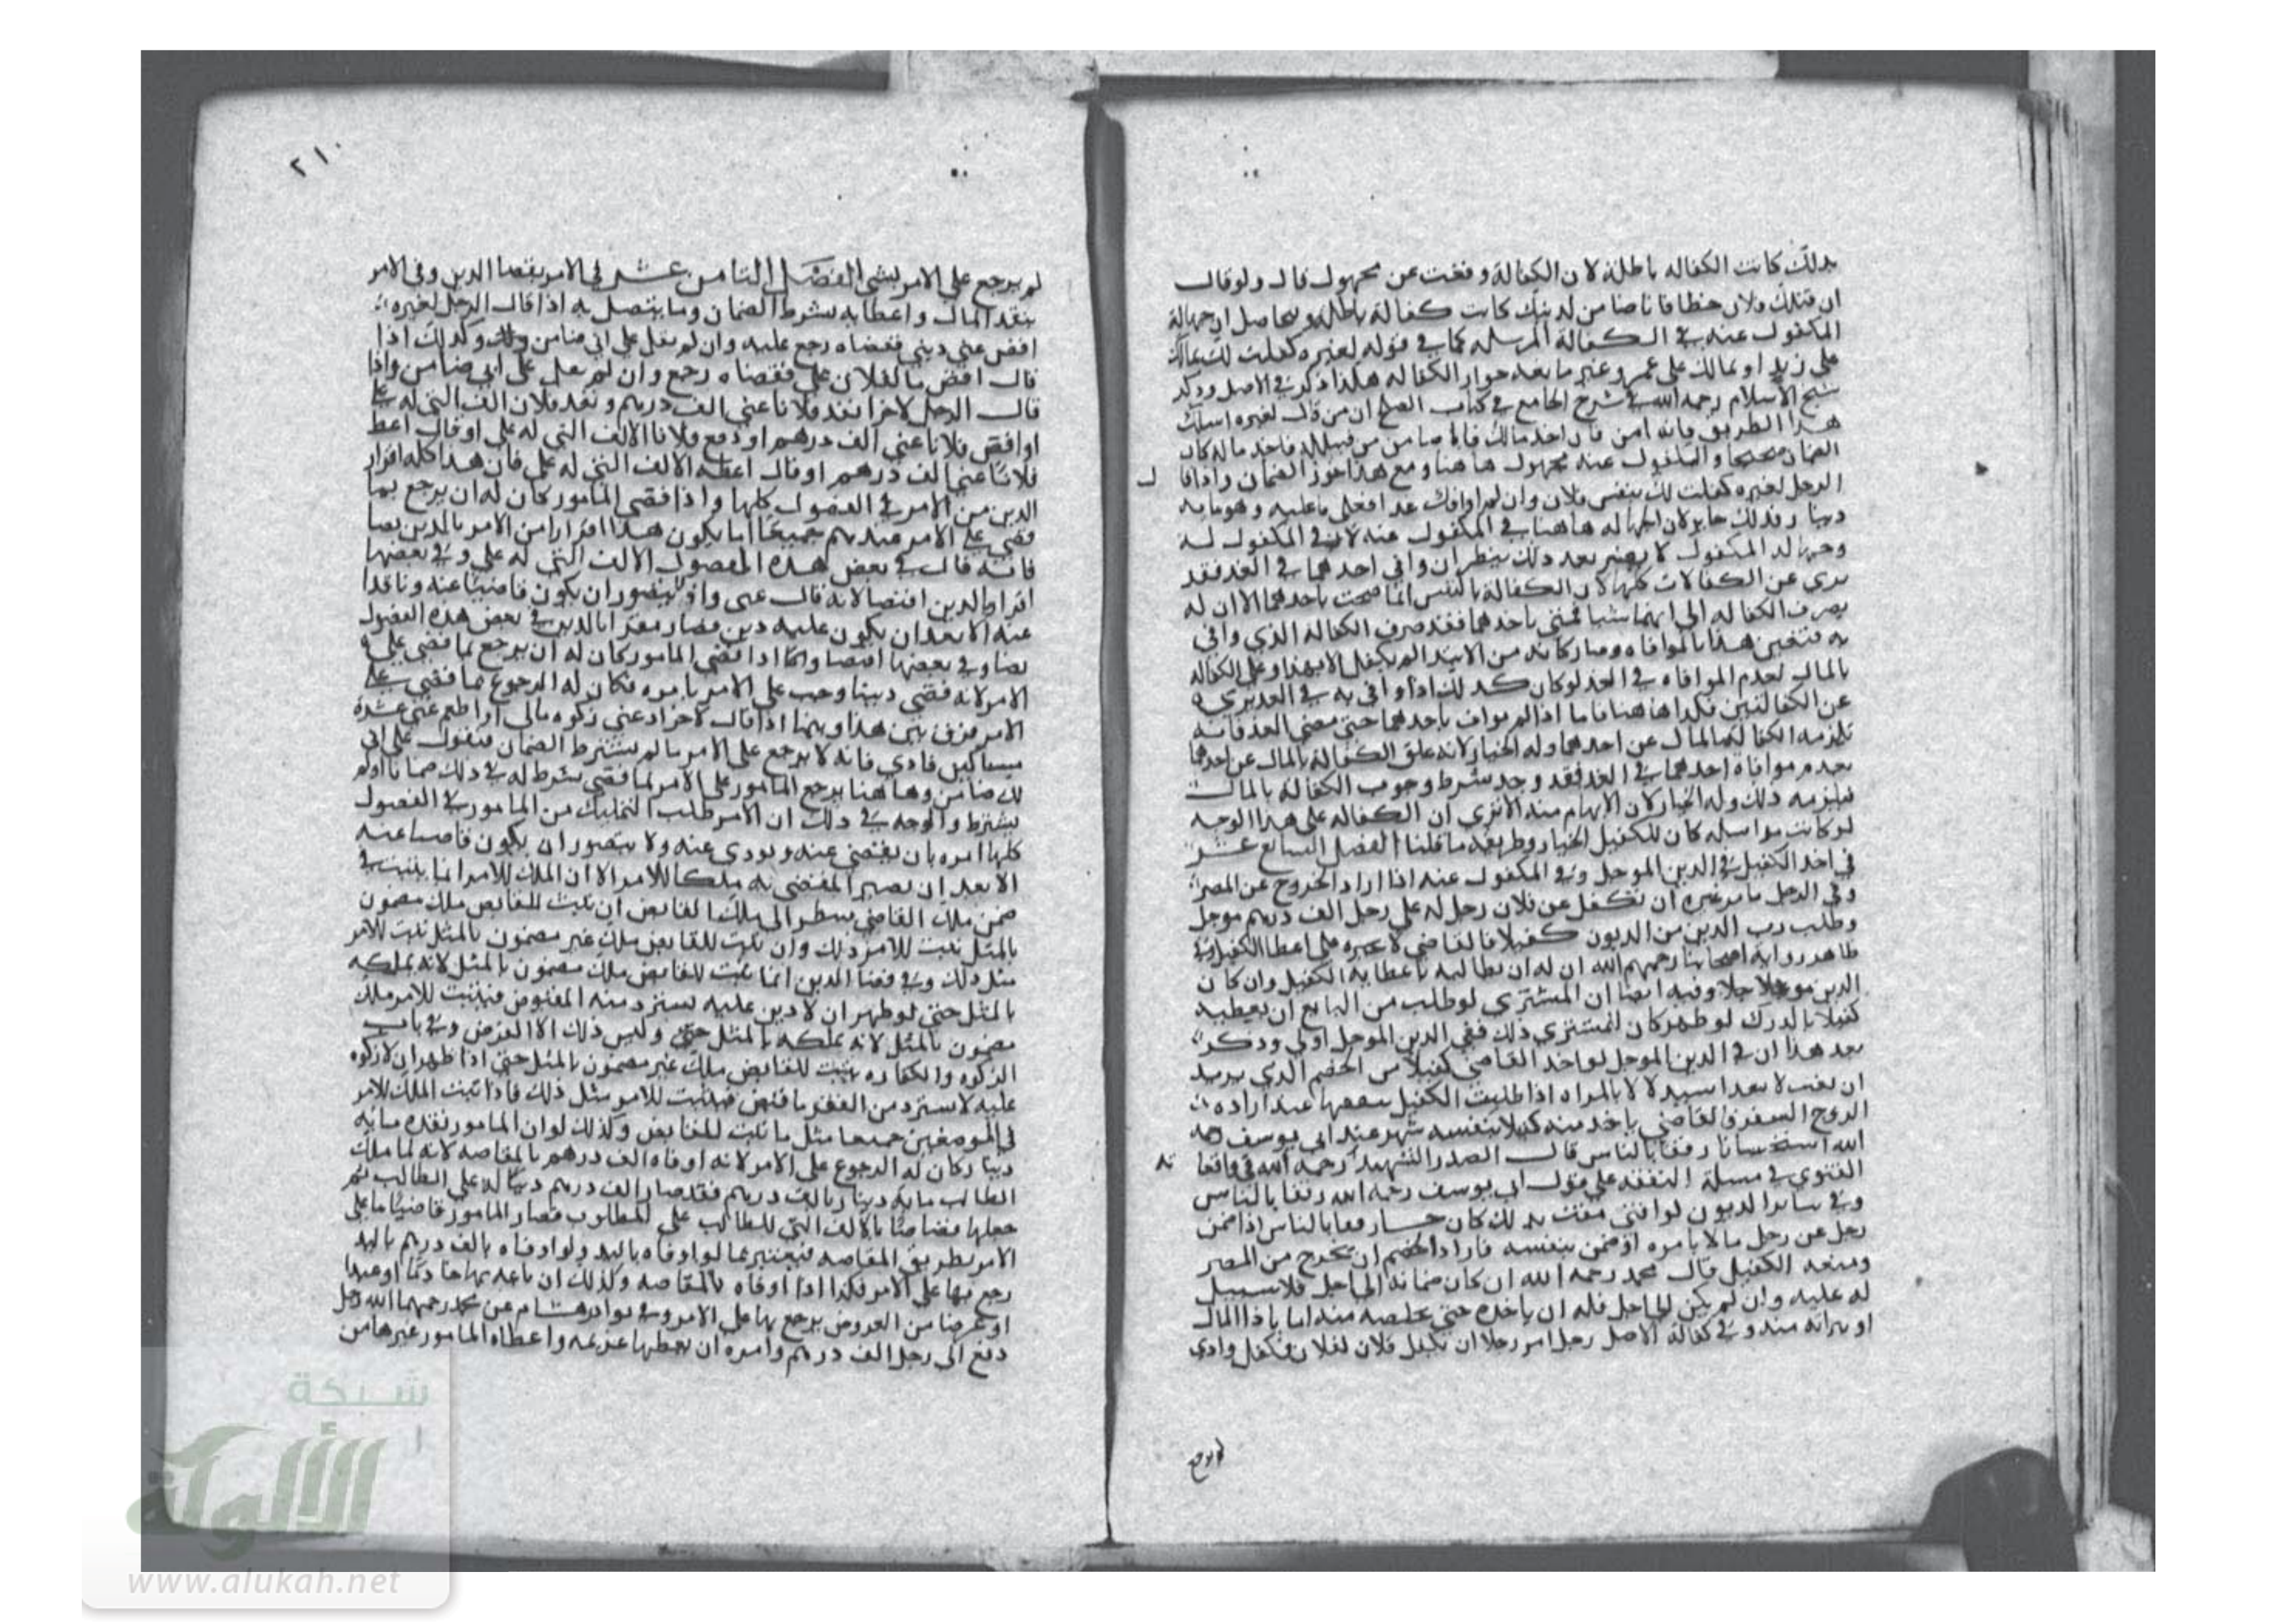 بذلك كانت الكفاله باطلة لان الكفالة وقعت عن مجهول قال ولو قال
ان قتلك فلان خطا فانا ضامن لديتك كانت كفالة باطلة وحاصل ان جهالة
المكفول عنه في الكفالة المرسله كما في قوله لغيره كفلت لك بمالك
على زيد او بمالك على عمرو وغير مانعه جواز الكفاله هكذا ذكر في الاصل وذكر
شيخ الاسلام رحمه الله في شرح الجامع في كتاب الصلح ان من قال لغيره اسلك
هذا الطريق فانه امن فان اخذ مالك فانا ضامن من فاخذ ماله كان
الضمان صحيحا والمكفول عنه مجهول هاهنا ومع هذا جوز الضمان واذا قا ل
الرجل لغيره كفلت لك بنفس فلان وان لم اوافك غدا فعلى ما عليه وهو مايه
دينار فذلك جايز لان الجهاله هاهنا في المكفول عنه لا في المكفول له
وجهالة المكفول لا بعد ذلك ينظر ان وافى احدهما في الغد فقد
برى عن الكفالات كلها لان الكفالة بالنفس انما صحت باحدهما الا ان له
يصرف الكفاله الى ايهما شا فمتى باحدهما فقد صرف الكفالة الذي وافى
به فتعين هذا بالموافاه وصار كانه من الابتدا لم يكفل الا بهذا وعلق الكفاله
بالمال بعدم الموافاه في الغد لو كان كذلك اذا وافى به في الغد يبرى
عن الكفالتين فكذا هاهنا فاما اذا لم يواف باحدهما حتى مضى الغد فانه
تلزمه الكفالة بالمال عن احدهما وله الخيار لانه علق الكفالة بالمال عن احدهما
بعدم موافاة احدهما في الغد فقد وجد شرط وجوب الكفالة بالمال
فيلزمه ذلك وله الخيار لان الابهام منه الا ترى ان الكفاله على هذا الوجه
لو كانت مرسله كان للكفيل الخيار وطريقه ما قلنا الفصل السابع عشر
في اخذ الكفيل في الدين الموجل وفي المكفول عنه اذا اراد الخروج عن المصر
وفي الرجل يامر غيره ان تكفل عن فلان رجل له على رجل الف درهم موجل
وطلب رب الدين من المديون كفيلا فالقاضي لا يجبره على اعطا الكفيل وفي
ظاهر رواية اصحابنا رحمهم الله ان له ان يطالبه باعطاية الكفيل وان كان
الدين موجلا وفيه ايضا ان المشتري لو طلب من البايع ان يعطيه
كفيلا بالدرك لو ظهر كان للمشتري ذلك ففي الدين الموجل اولى وذكر
بعد هذا ان في الدين الموجل لو اخذ القاضي كفيلا من الخصم الذي يريد
ان يغيب لا بعد استدلالا بالمراه اذا طلبت الكفيل بنفقتها عند ارادة
الزوج السفر فالقاضي ياخذ منه كفيلا بنفسه شهر عند ابي يوسف رحمه
الله استحسانا رفقا بالناس قال الصدر الشهيد رحمه الله في واقعا ته
الفتوى في مسلة النفقه على قول ابي يوسف رحمه الله رفقا بالناس
وفي ساير الديون لو افتى مفت بذلك كان حسنا رفقا بالناس اذا ضمن
رجل عن رجل مالا بامره او ضمن بنفسه فاراد الخصم ان يخرج من المصر
ومنعه الكفيل قال محمد رحمه الله ان كان ضمانه الى اجل فلا سبيل
له عليه وان لم يكن الى اجل فله ان ياخذه حتى يخلصه منه اما باذا المال
او براته منه وفي كفالة الاصل رجل امر رجلا ان تكفل فلان لفلان فكفل وادى
لم يرجع
٢١٠
لم يرجع على الامر بشي الفصل الثامن عشر في الامر بقضا الدين وفي الامر
بنقد المال واعطايه بشرط الضمان وما يتصل به اذا قال الرجل لغيره
اقض عني ديني فقضاه رجع عليه وان لم يقل على اني ضامن وكذلك اذا
قال اقض ما لفلان علي فقضاه رجع وان لم يقل على اني ضامن واذا
قال الرجل لاخر انقد فلانا عني الف درهم ونقد فلان الف التي له علي
او اقض فلانا عني الف درهم او ادفع فلانا الالف التي له علي او قال اعط
فلانا عني الف درهم او قال اعطه الالف التي له علي فان هذا كله اقرار
الدين من الامر في الفصول كلها واذا قضى المامور كان له ان يرجع بما
قضى على الامر عندهم جميعا انما يكون هذا اقرارا من الامر بالدين نصا
فانه قال في بعض هذه الفصول الالف التي له علي وفي بعضها
اقرار بالدين اقتضا لانه قال عني ولا يتصور ان يكون قاضيا عنه وناقدا
عنه الا بعد ان يكون عليه دين فصار مقرا بالدين في بعض هذه الفصول
نصا وفي بعضها اقتضا وانما اذا قضى المامور كان له ان يرجع بما قضى على
الامر لانه قضى دينا وجب على الامر بامره فكان له الرجوع بما قضى على
الامر فرق بين هذا وبينما اذا قال لاخر اد عني زكوه مالي او اطعم عني عشرة
مساكين فادى فانه لا يرجع على الامر ما لم يشترط الضمان فيقول على اني
لك ضامن وهاهنا يرجع المامور على الامر لما قضى بشرط له في ذلك ضمانا او لم
يشترط والوجه في ذلك ان الامر طلب التمليك من المامور في الفصول
كلها امره بان يقضى عنه ويودى عنه ولا يتصور ان يكون قاضيا عنه
الا بعد ان يصير المقضى به ملكا للامر الا ان الملك للامر انما يثبت في
ضمن ملك القابض ينظر الى ملك القابض ان ثبت للقابض ملك مضمون
بالمثل يثبت للامر ذلك وان ثبت للقابض ملك غير مضمون بالمثل ثبت للامر
مثل ذلك وفي قضا الدين انما يثبت للقابض ملك مضمون بالمثل لانه يملكه
بالمثل حتى لو ظهر ان لا دين عليه يسترد منه المقبوض فيثبت للامر ملك
مضمون بالمثل لانه يملكه بالمثل وليس ذلك الا القرض وفي باب
الزكوه والكفاره يثبت للقابض ملك غير مضمون بالمثل حتى اذا ظهر ان لا زكوه
عليه لا يسترد من الفقير ما قبض فيثبت للامر مثل ذلك فاذا ثبت الملك للامر
في الموضعين جميعا مثل ما ثبت للقابض وكذلك لو ان المامور نقده مايه
دينار كان له الرجوع على الامر لانه اوفاه الف درهم بالمقاصه لانه لما ملك
الطالب مايه دينار بالف درهم فقد صار الف درهم دينا له على الطالب ثم
جعلها قصاصا بالالف التي للطالب على المطلوب فصار المامور قاضيا ما على
الامر بطريق المقاصه فيعتبر بما لو اوفاه باليد ولو اوفاه بالف درهم باليد
رجع بها على الامر فكذا اذا اوفاه بالمقاصه وكذلك ان باعه بها او عبدا
او عرضا من العروض يرجع بها على الامر وفي نوادر هشام عن محمد رحمهما الله رجل
دفع الى رجل الف درهم وامره ان يعطيها غريمه واعطاه المامور غيرها من
شبكة
الألوكة
www.alukah.net